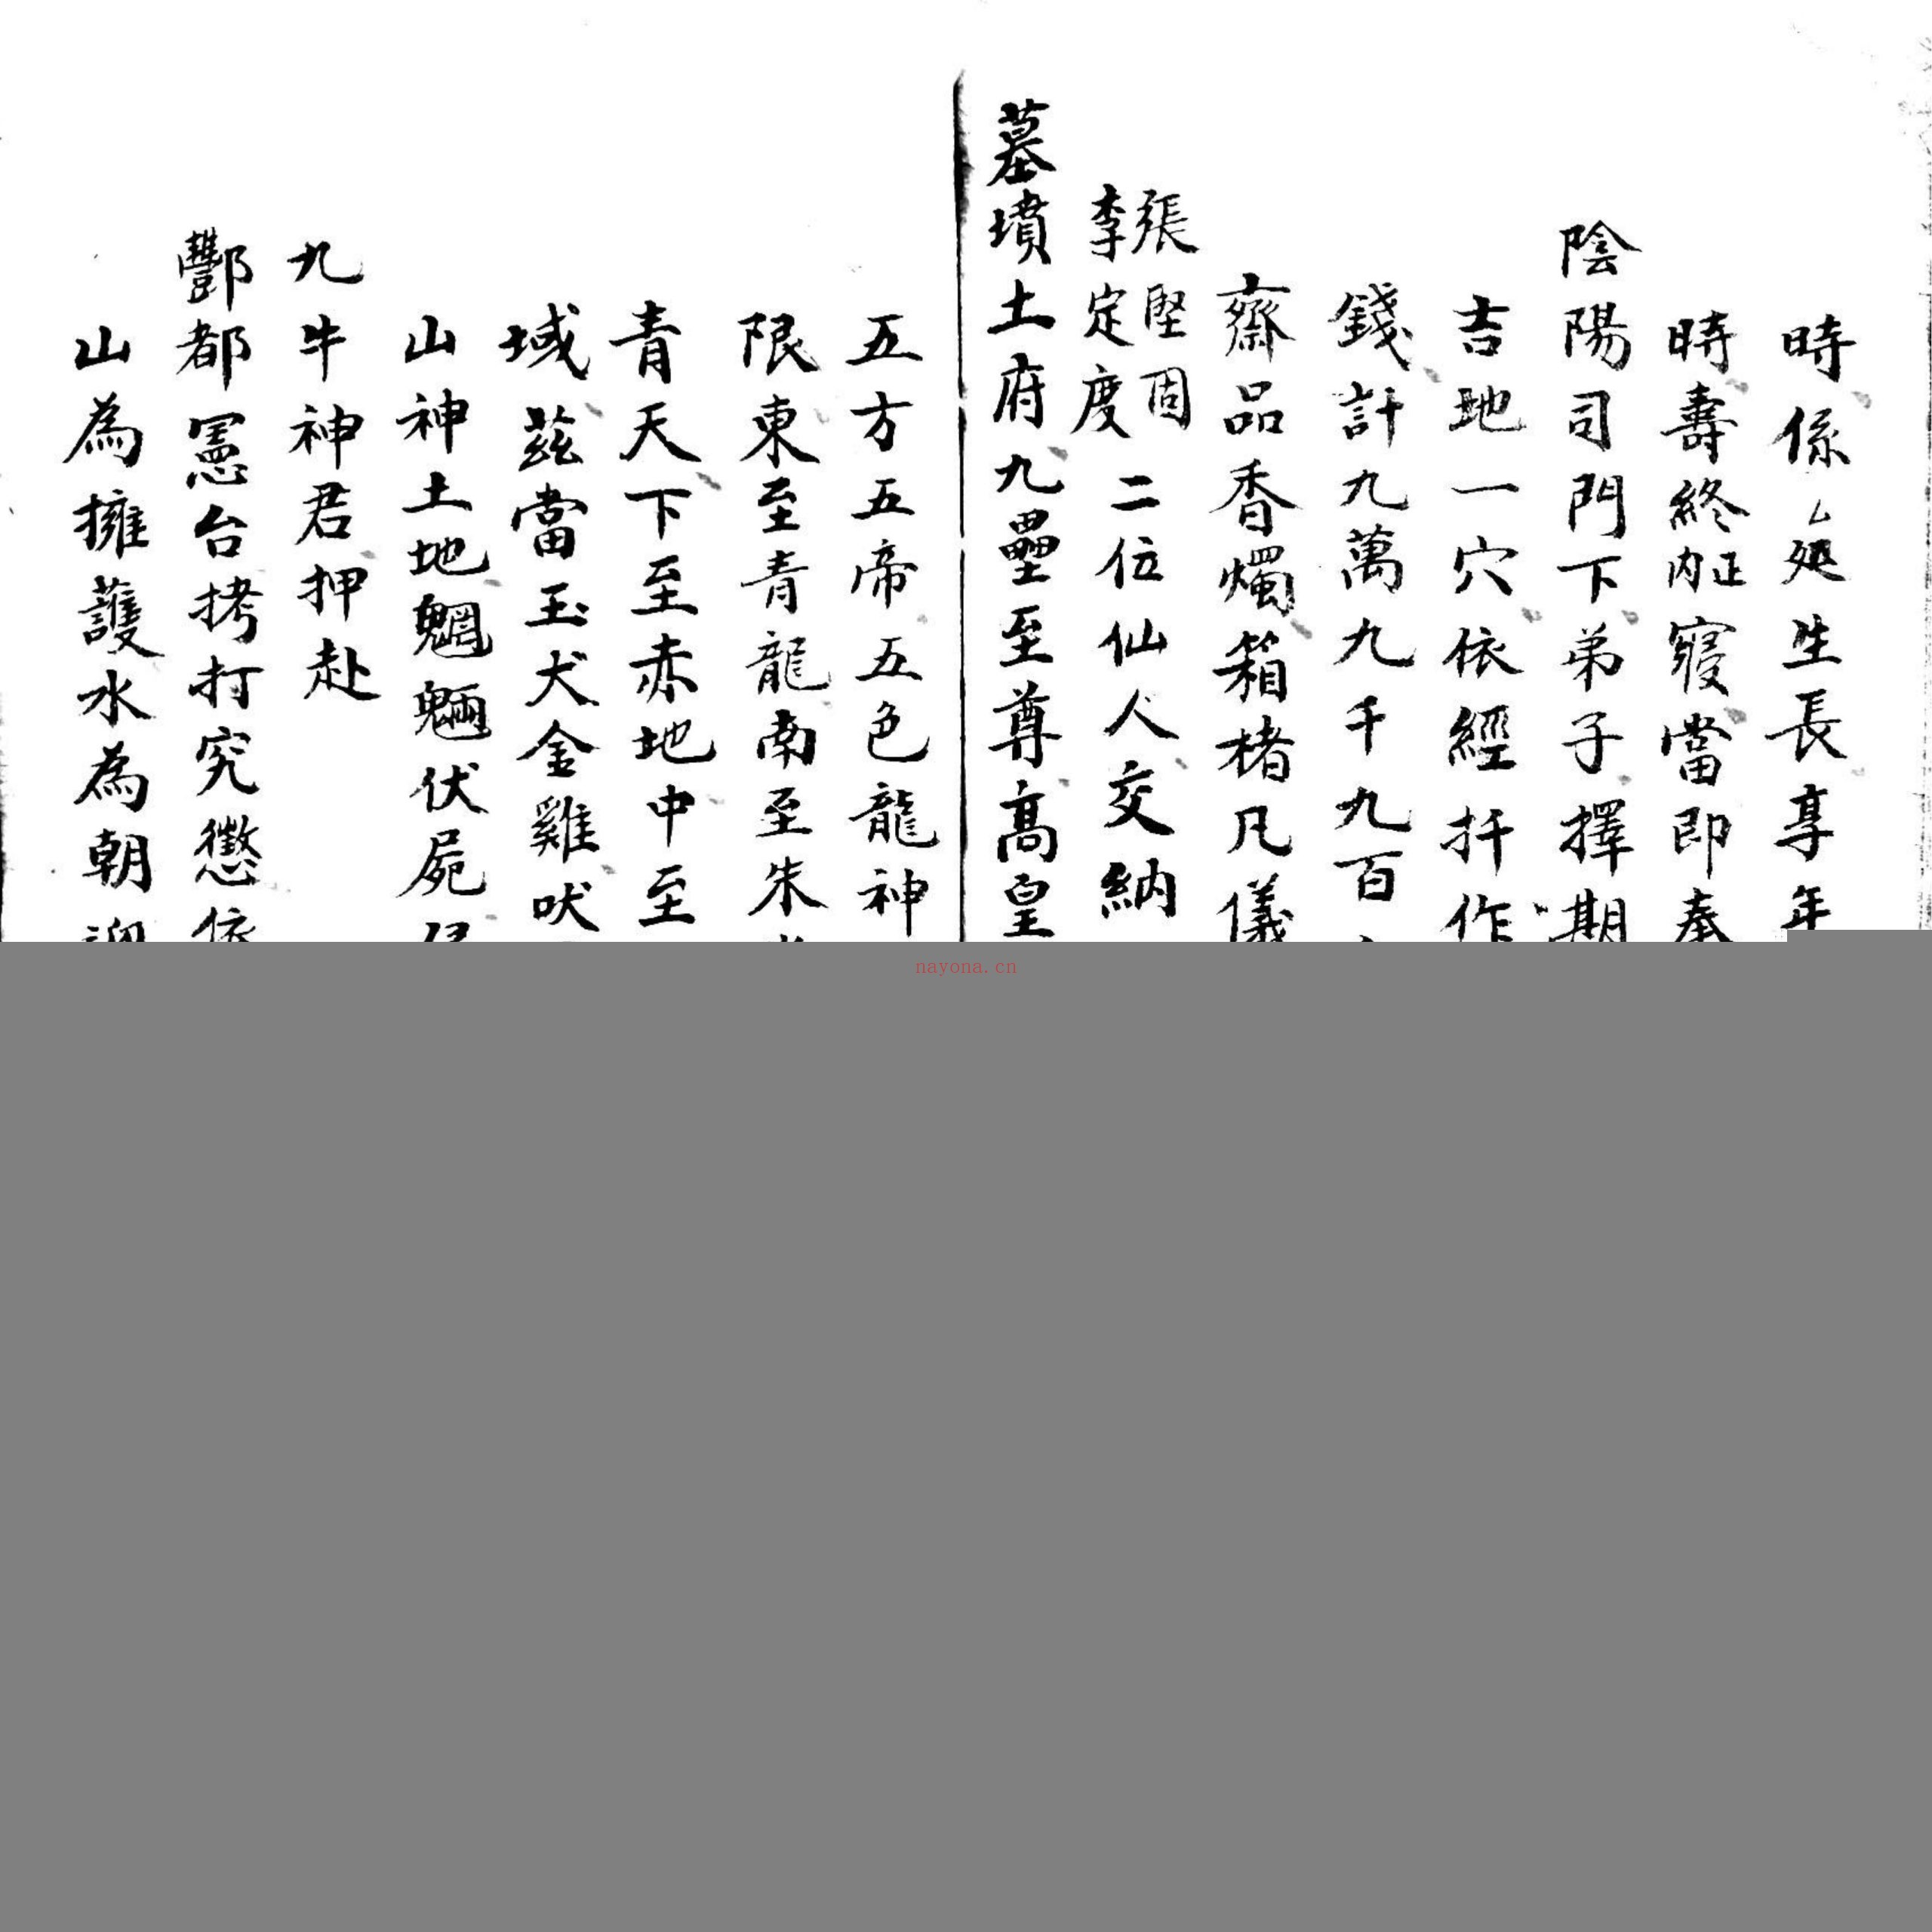 時係厶处生長享年
時壽終內正寢當即奉
陰陽司門下弟子擇期
吉地一穴依經扦作
錢計九萬九千九百
齋品香燭箱楮凡儀
張堅固
李定度
二位仙人交納
墓墳土府九壘至尊高皇
五方五帝五色龍神
限東至青龍南至朱
青天下至赤地中至
域茲當玉犬金雞吠
山神土地魍魎伏屍
九牛神君押赴
酆都憲台拷打究懲依
山為擁護水為朝迎
nayona.cn